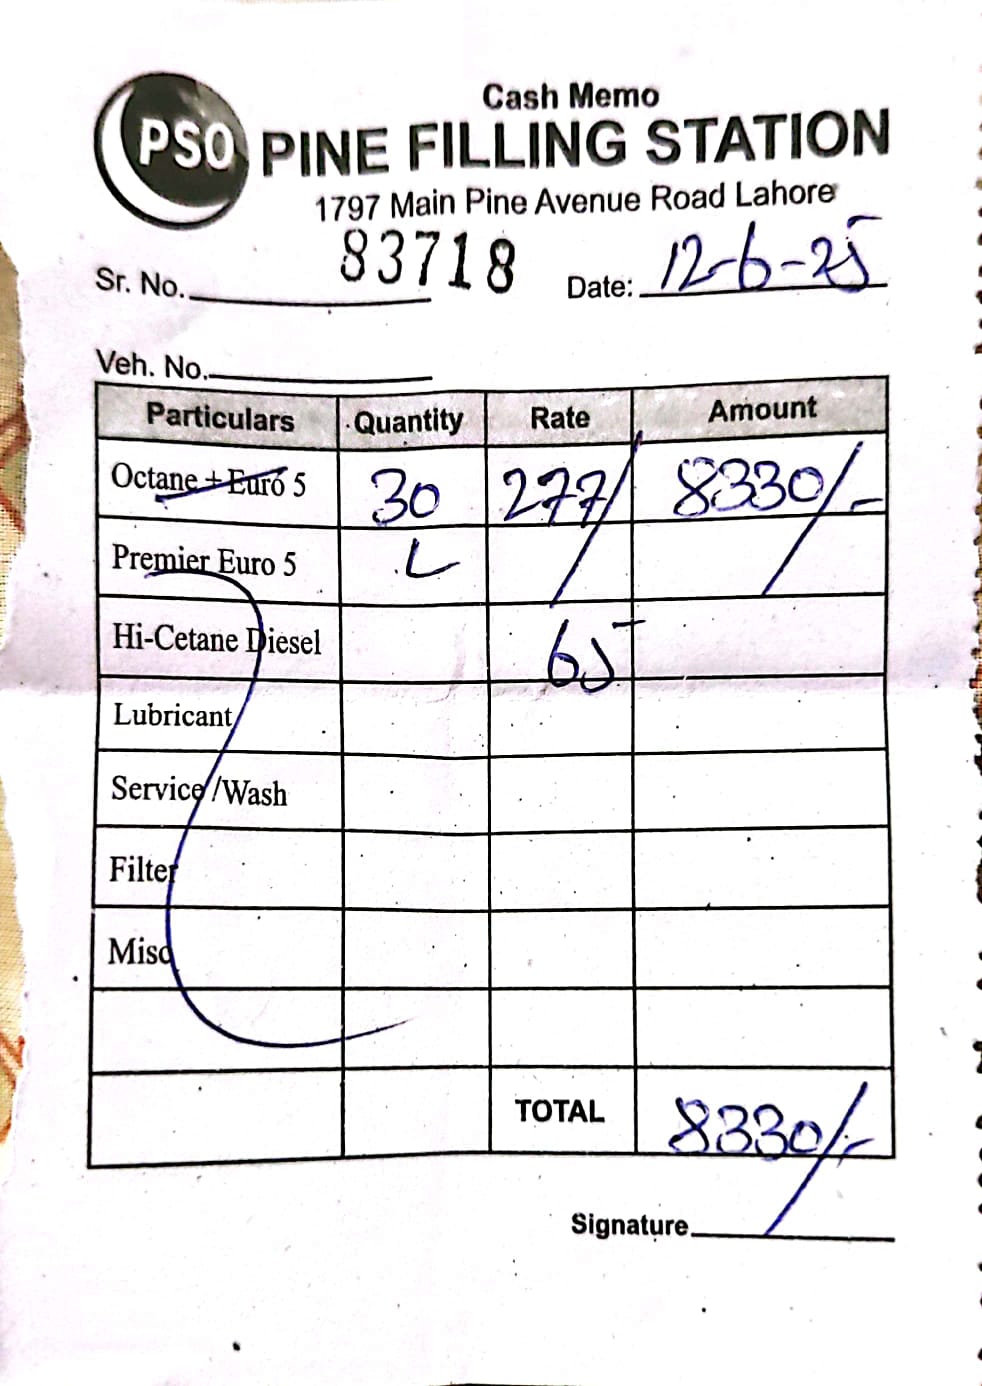 Cash Memo
PSO PINE FILLING STATION
1797 Main Pine Avenue Road Lahore
Sr. No. 83718 Date: 12-6-25
Veh. No.
Particulars Quantity Rate Amount
Octane + Euro 5 30 277/ 8330/-
Premier Euro 5 L
Hi-Cetane Diesel 65
Lubricant
Service/Wash
Filter
Misc
TOTAL 8330/-
Signature